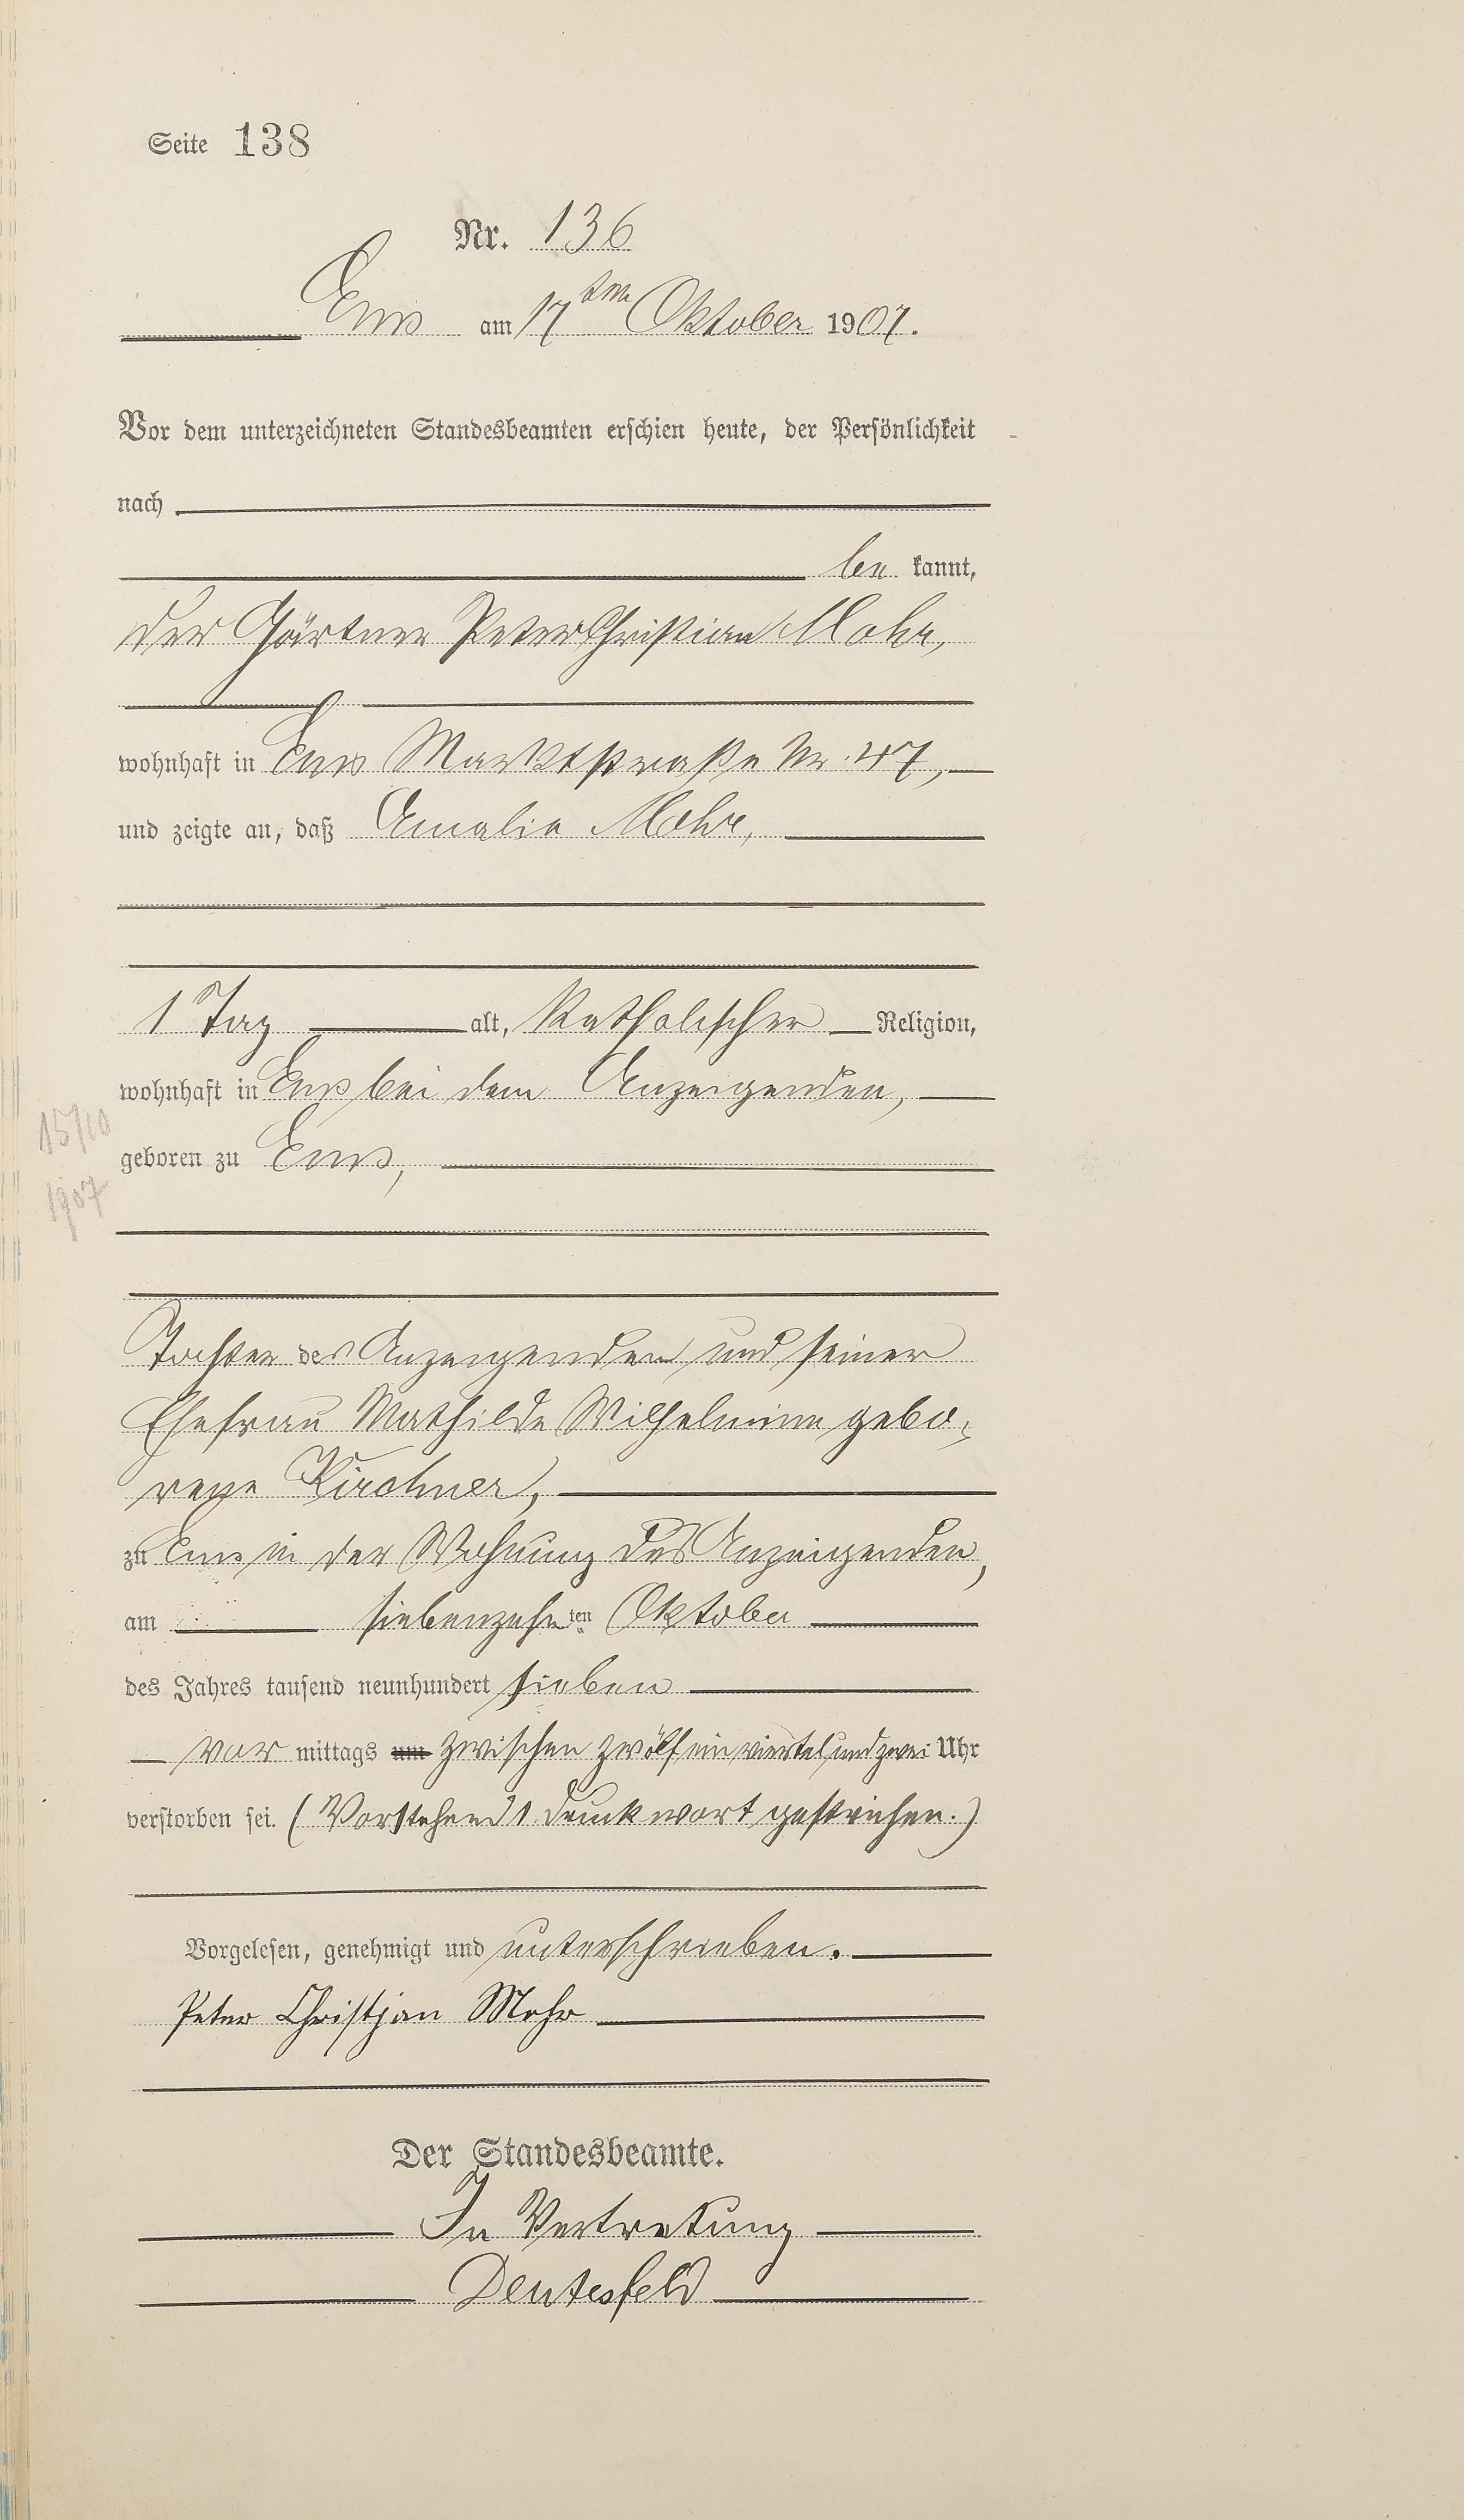 Seite 138
Nr. 136
Ems am 17ten Oktober 1907.
Vor dem unterzeichneten Standesbeamten erschien heute, der Persönlichkeit
nach
be kannt,
der Gärtner Peter Christian Mohr,
wohnhaft in Ems Marktstraße Nr. 47,
und zeigte an, daß Amalie Mohr,
1 Tag alt, Katholischer Religion,
wohnhaft in Ems bei dem Anzeigenden,
15/10
geboren zu Ems,
1907
Tochter des Anzeigenden und seiner
Ehefrau Mathilde Wilhelmine gebo-
rene Kirchner,
zu Ems in der Wohnung des Anzeigenden,
am siebenzehnten Oktober
des Jahres tausend neunhundert sieben
vor mittags um zwischen zwölf ein viertel und zwei Uhr
verstorben sei. (Vorstehend 1 Druckwort gestrichen.)
Vorgelesen, genehmigt und unterschrieben.
Peter Christjan Mohr
Der Standesbeamte.
In Vertretung
Deutesfeld